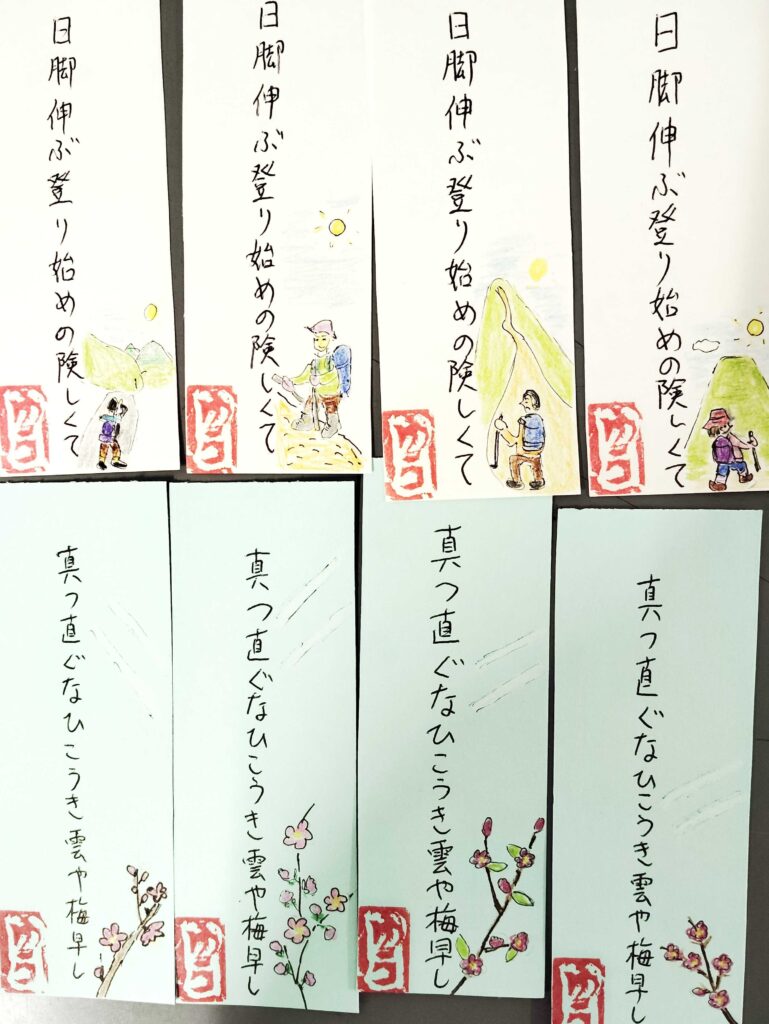 日脚伸ぶ登り始めの険しくて
日脚伸ぶ登り始めの険しくて
日脚伸ぶ登り始めの険しくて
日脚伸ぶ登り始めの険しくて
真つ直ぐなひこうき雲や梅早し
真つ直ぐなひこうき雲や梅早し
真つ直ぐなひこうき雲や梅早し
真つ直ぐなひこうき雲や梅早し